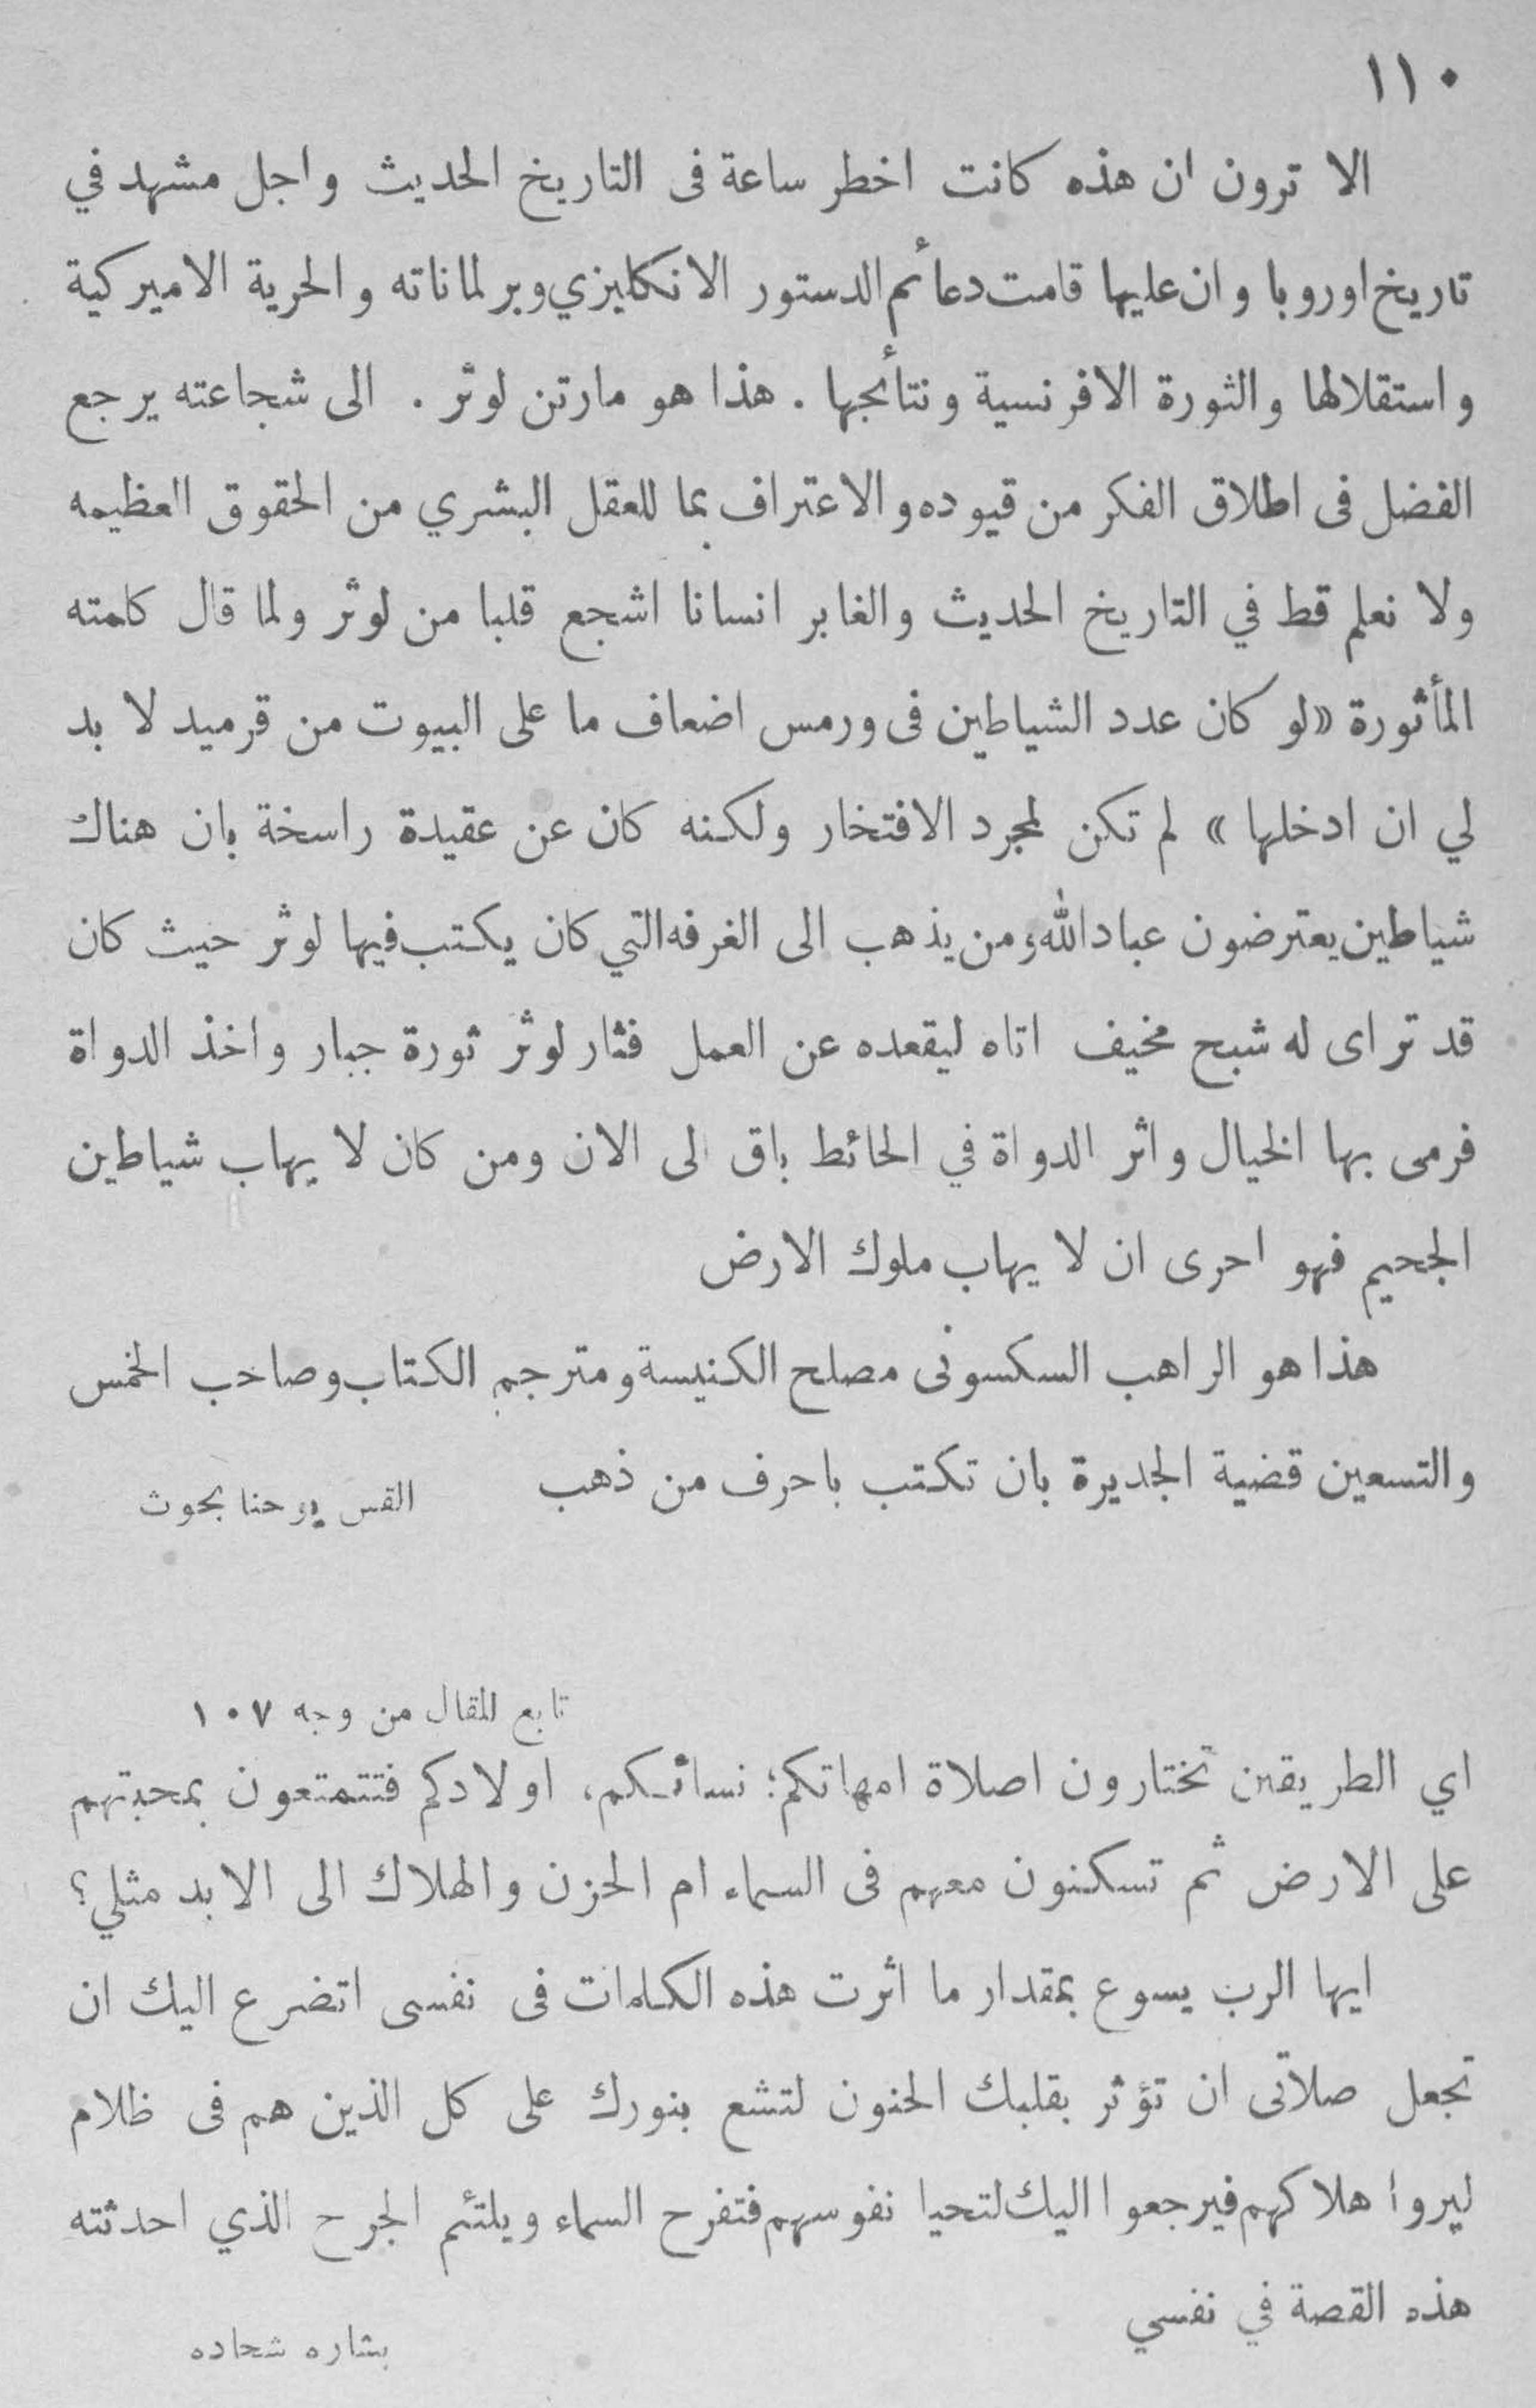 ١١٠
الا ترون ان هذه كانت اخطر ساعة فى التاريخ الحديث واجل مشهد في
تاريخ اوروبا وان عليها قامت دعائم الدستور الانكليزي وبرلماناته والحرية الاميركية
واستقلالها والثورة الافرنسية ونتائجها . هذا هو مارتن لوثر . الى شجاعته يرجع
الفضل فى اطلاق الفكر من قيوده والاعتراف بما للعقل البشري من الحقوق العظيمه
ولا نعلم قط في التاريخ الحديث والغابر انسانا اشجع قلبا من لوثر ولما قال كلمته
المأثورة «لو كان عدد الشياطين فى ورمس اضعاف ما على البيوت من قرميد لا بد
لي ان ادخلها» لم تكن لمجرد الافتخار ولكنه كان عن عقيدة راسخة بان هناك
شياطين يعترضون عبادالله ومن يذهب الى الغرفه التي كان يكتب فيها لوثر حيث كان
قد تراى له شبح مخيف اتاه ليقعده عن العمل فثار لوثر ثورة جبار واخذ الدواة
فرمى بها الخيال واثر الدواة في الحائط باق الى الان ومن كان لا يهاب شياطين
الجحيم فهو احرى ان لا يهاب ملوك الارض
هذا هو الراهب السكسونى مصلح الكنيسة ومترجم الكتاب وصاحب الخمس
والتسعين قضية الجديرة بان تكتب باحرف من ذهب
القس يوحنا بحوث
تابع المقال من وجه ١٠٧
اي الطريقين تختارون اصلاة امهاتكم؛ نسائكم، اولادكم فتتمتعون بمحبتهم
على الارض ثم تسكنون معهم فى السماء ام الحزن والهلاك الى الابد مثلي؟
ايها الرب يسوع بمقدار ما اثرت هذه الكلمات فى نفسى اتضرع اليك ان
تجعل صلاتى ان تؤثر بقلبك الحنون لتشع بنورك على كل الذين هم فى ظلام
ليروا هلاكهم فيرجعوا اليك لتحيا نفوسهم فتفرح السماء ويلتئم الجرح الذي احدثته
هذه القصة في نفسي
بشاره شحاده